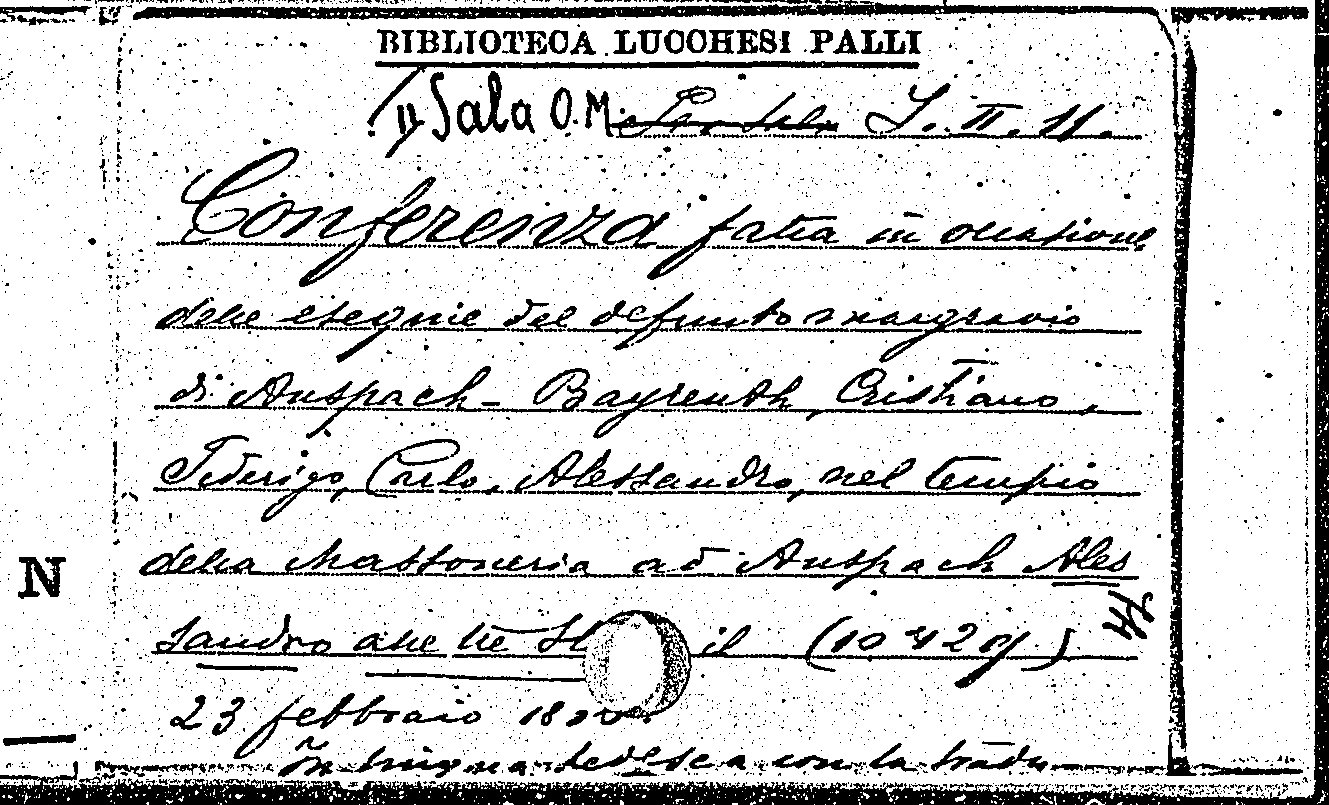 BIBLIOTECA LUCCHESI PALLI
Sala O.M. I. II. 11.
Conferenza fatta in occasione
delle esequie del defunto margravio
di Anspach-Bayreuth, Cristiano,
Federigo, Carlo, Alessandro, nel tempio
della Massoneria ad Anspach Ales
sandro alle tre St il (10 429)
23 febbraio
In lingua tedesca con la tradu
N